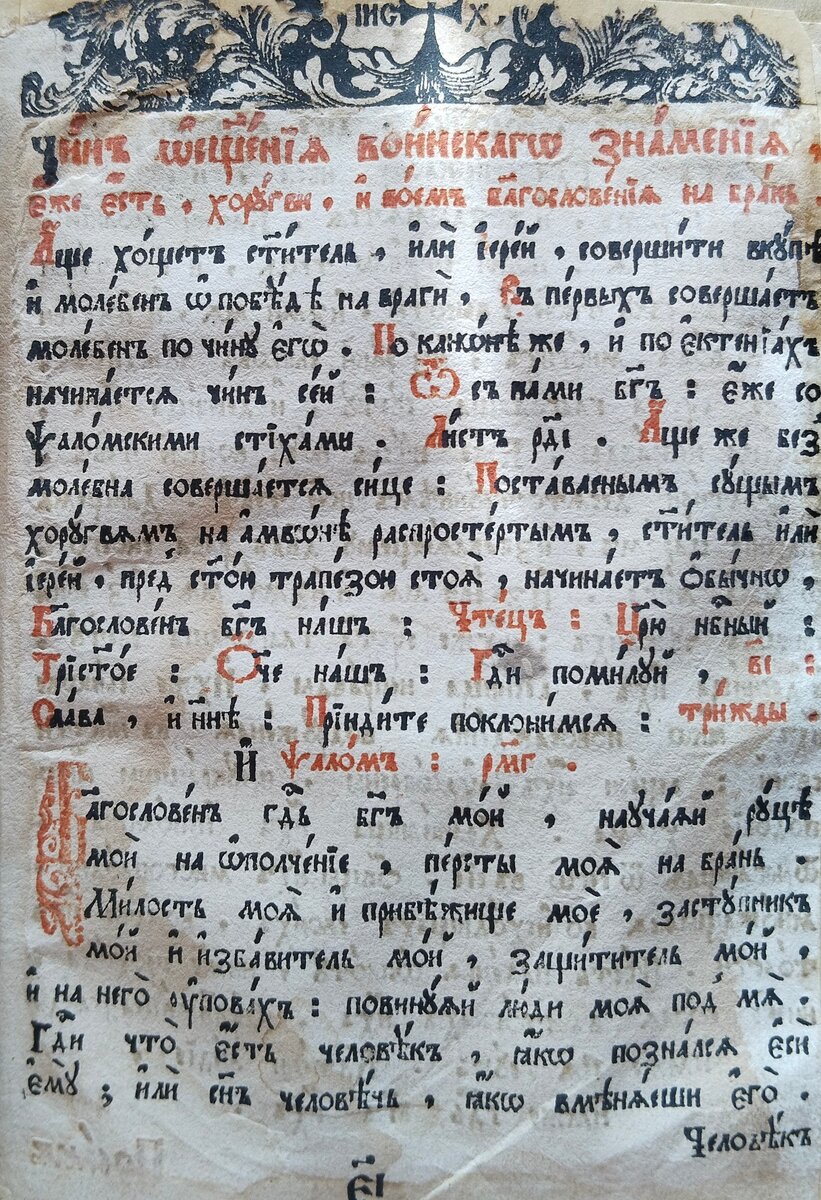 І҆ИС Х҃,
Чи́нъ ѡ҆сщ҃е́нїѧ вои́нскагѡ зна́менїѧ
є҆́же є҆́сть, хорꙋ́гви, и҆ во́емъ бл҃гослове́нїѧ на бра́нь.
А҆́ще хо́щетъ ст҃и́тель, и҆лѝ і҆ере́й, соверши́ти вкꙋ́пѣ
и҆ моле́бенъ ѡ҆ побѣ́дѣ на врагѝ, Въ пе́рвыхъ соверша́етъ
моле́бенъ по чи́нꙋ є҆гѡ̀. По канѡ́нѣ же, и҆ по є҆ктенїа́хъ
начина́етсѧ чи́нъ се́й: Ѿ съ на́ми бг҃ъ: є҆́же со
ѱало́мскими стїха́ми. Ли́стъ рд҃і. А҆́ще же без̾
моле́бна соверша́етсѧ си́це: Поста́вленымъ сꙋ́щымъ
хорꙋ́гвѧмъ на а҆мвѡ́нѣ распросте́ртымъ, ст҃и́тель и҆лѝ
і҆ере́й, пред̾ ст҃о́й трапе́зой стоѧ̀, начина́етъ ѻ҆бы́чнѡ,
Бл҃гослове́нъ бг҃ъ на́шъ: Чте́цъ: Цр҃ю̀ нб҃ный:
Трїст҃о́е: Ѻ҆́ч҃е на́шъ: Гд҃и поми́лꙋй, в҃і:
Сла́ва, и҆ нн҃ѣ: Прїиди́те поклони́мсѧ: три́жды.
И҆ ѱало́мъ: рм҃г.
Бл҃гослове́нъ гд҃ь бг҃ъ мо́й, наꙋча́ѧй рꙋ́цѣ
моѝ на ѡ҆полче́нїе, пе́рсты моѧ̀ на бра́нь.
Ми́лость моѧ̀ и҆ прибѣ́жище моѐ, застꙋ́пникъ
мо́й и҆ и҆зба́витель мо́й, защи́титель мо́й,
и҆ на него̀ ᲂу҆пова́хъ: повинꙋ́ѧй лю́ди моѧ̀ под̾ мѧ̀.
Гд҃и что̀ є҆́сть человѣ́къ, ꙗ҆́кѡ позна́лсѧ є҆сѝ
є҆мꙋ̀; и҆лѝ сн҃ъ человѣ́чь, ꙗ҆́кѡ вмѣнѧ́еши є҆го̀.
Человѣ́къ
є҃і